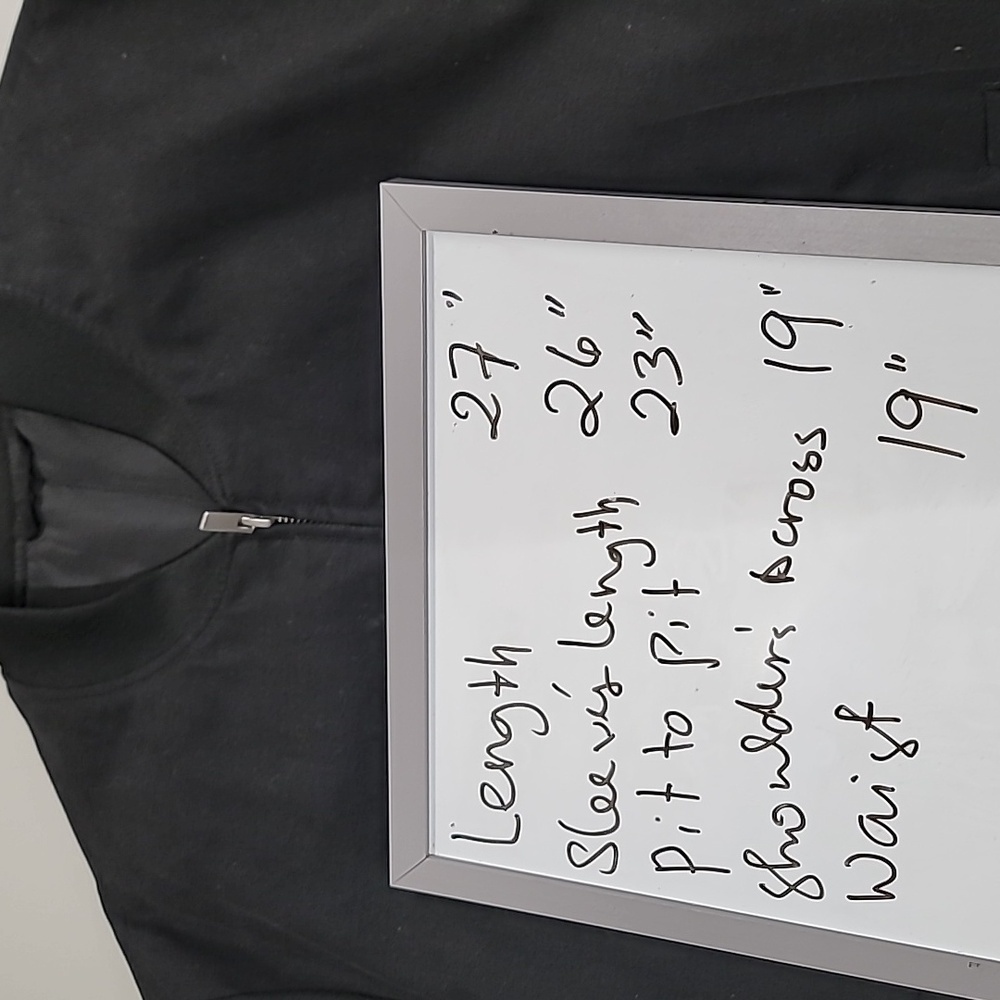 Length 27"
Sleeve's Length 26"
Pit to Pit 23"
Shoulder's across 19"
Waist 19"